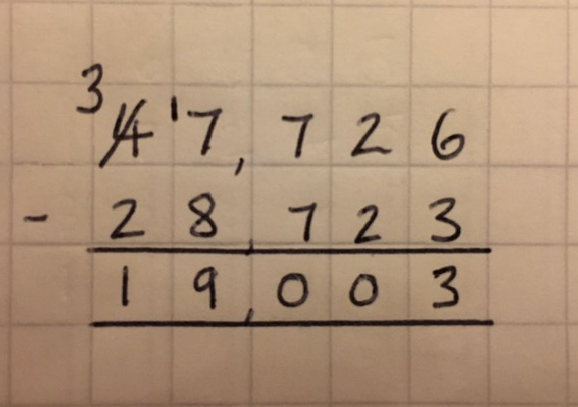 3 4 17,726
- 28,723
19,003